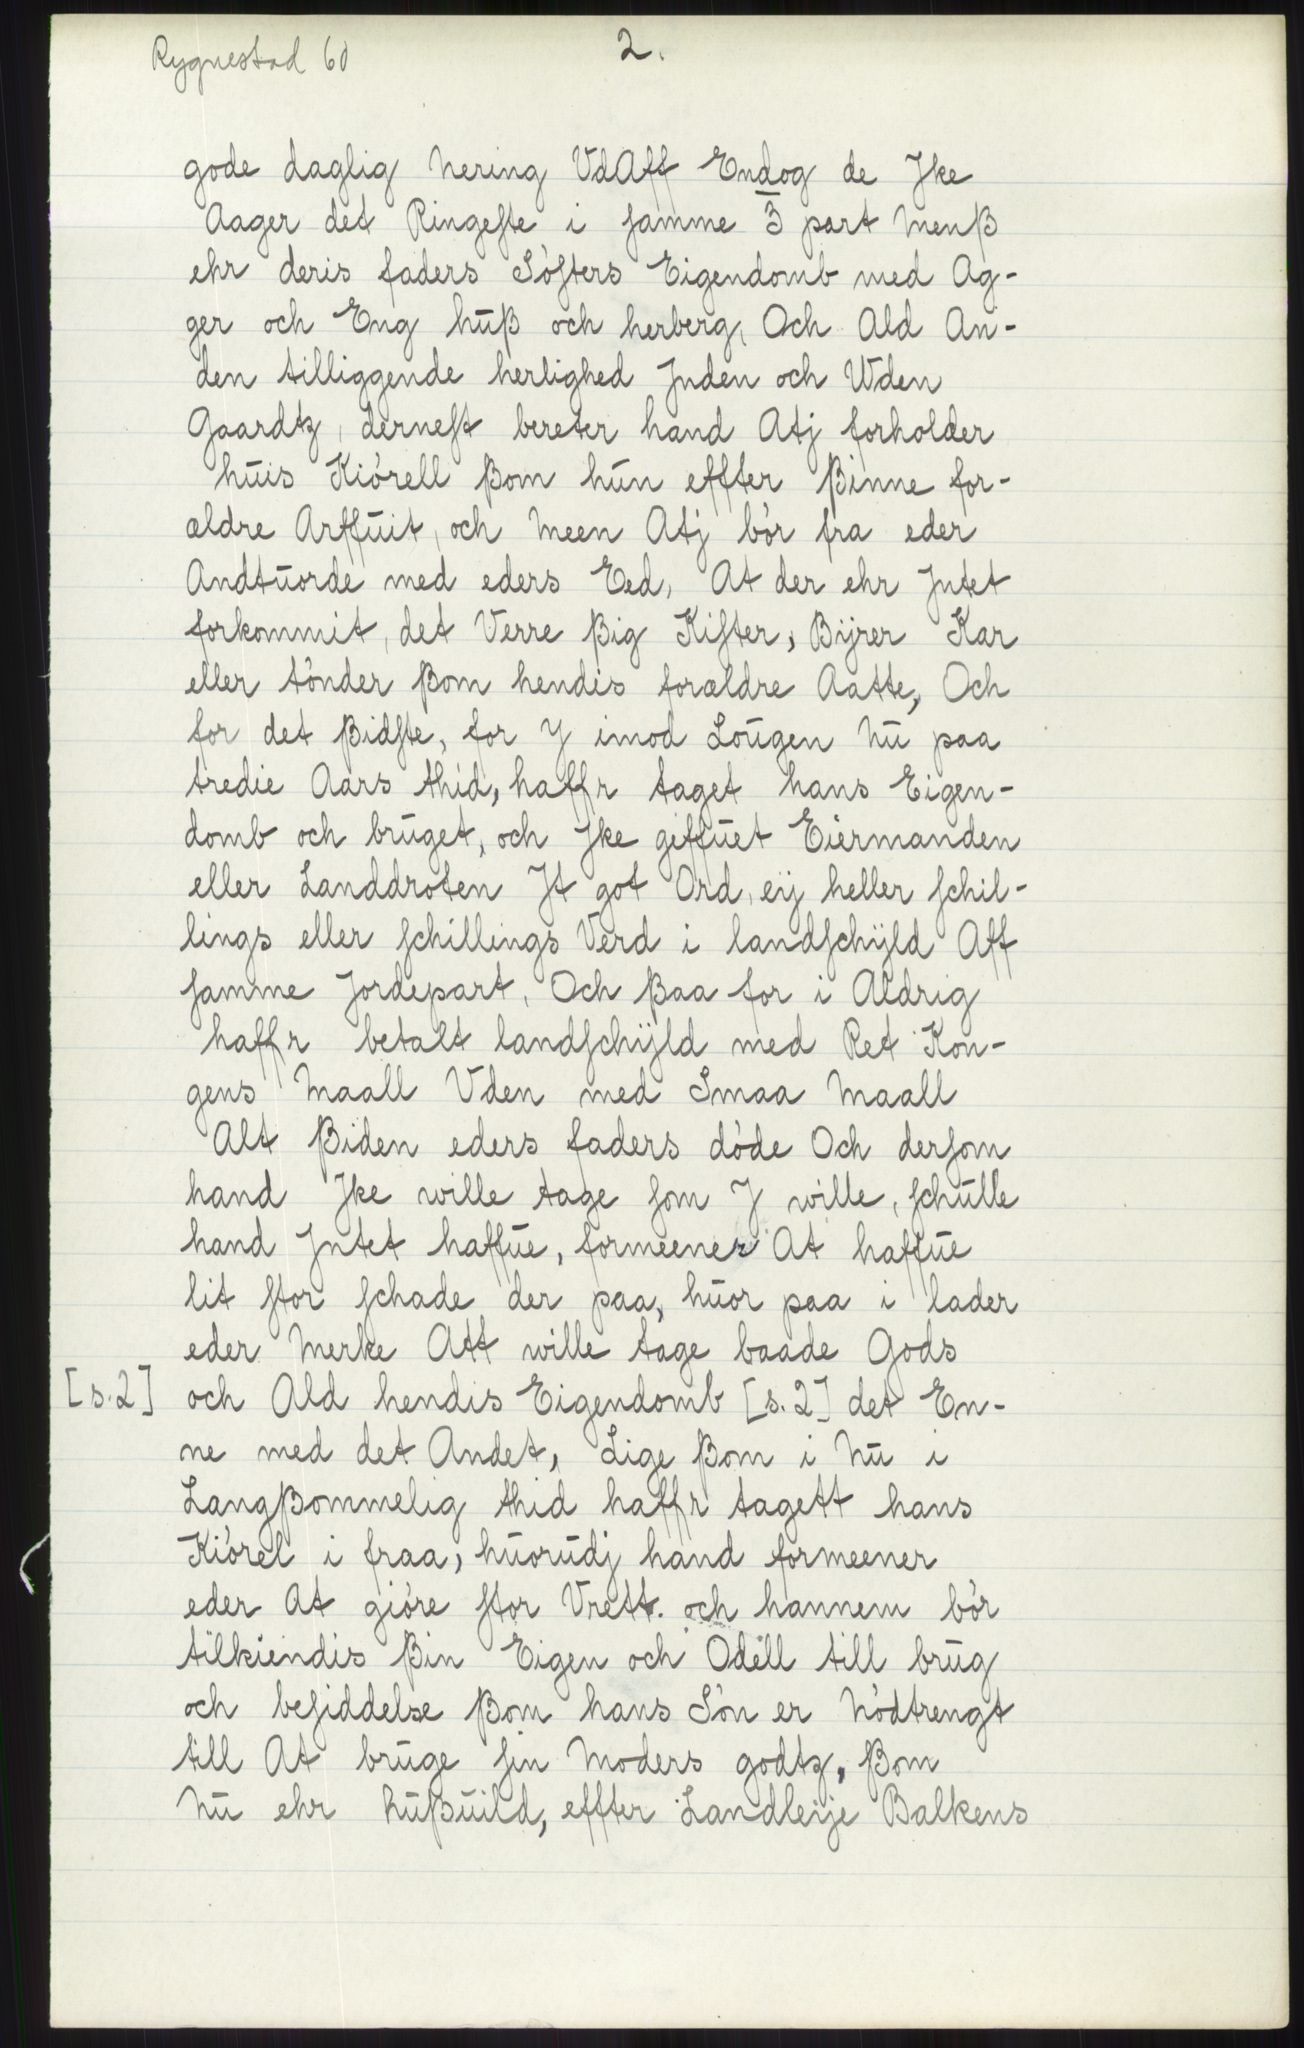 Rygnestad 60
2.
gode daglig Nering VdAff Endog de Jke
Aager det Ringeste i samme 3̅ part Menß
ehr deris faders Sósters Eigendomb med Ag-
ger och Eng hūß och herberg, Och Ald An-
den tilliggende herlighed Jnden och Wden
Gaardtz, dernest bereter hand Atj forholder
hūis Kiórell ßom hūn effter ßinne for-
ældre Arffūit, och Meen Atj bór fra eder
Andtūorde med eders Eed, At der ehr Jntet
forkommit, det Verre ßig Kister, Bÿrer Kar
eller tónder ßom hendis forældre Aatte, Och
for det ßidste, for Y imod Loūgen Nū paa
tredie Aars thid, haffr taget hans Eigen-
domb och brūget, och Jke giffūet Eiermanden
eller Landdroten Jt got Ord, eÿ heller schil-
lings eller schillings Verd i landschÿld Aff
samme Jordepart, Och ßaa for i Aldrig
haffr betalt landschÿld med Ret Kon-
gens Maall Vden med Smaa Maall
Alt ßiden eders faders dóde Och dersom
hand Jke wille tage som J wille, schūlle
hand Jntet haffūe, formeener At haffūe
lit stor schade der paa, hūor paa i lader
eder Merke Att wille tage baade Gods
[s.2] och Ald hendis Eigendomb [s.2] det En-
ne med det Andet, Lige ßom i Nū i
Langßommelig thid haffr tagett hans
Kiórel i fraa, hūorūdj hand formeener
eder At gióre stor Vrett. och hannem bór
tilkiendis ßin Eigen och Odell till brūg
och besiddelse ßom hans Són er Nódtrengt
till At brūge sin Moders godtz, ßom
Nū ehr hūßūild, effter Landleije Balkens